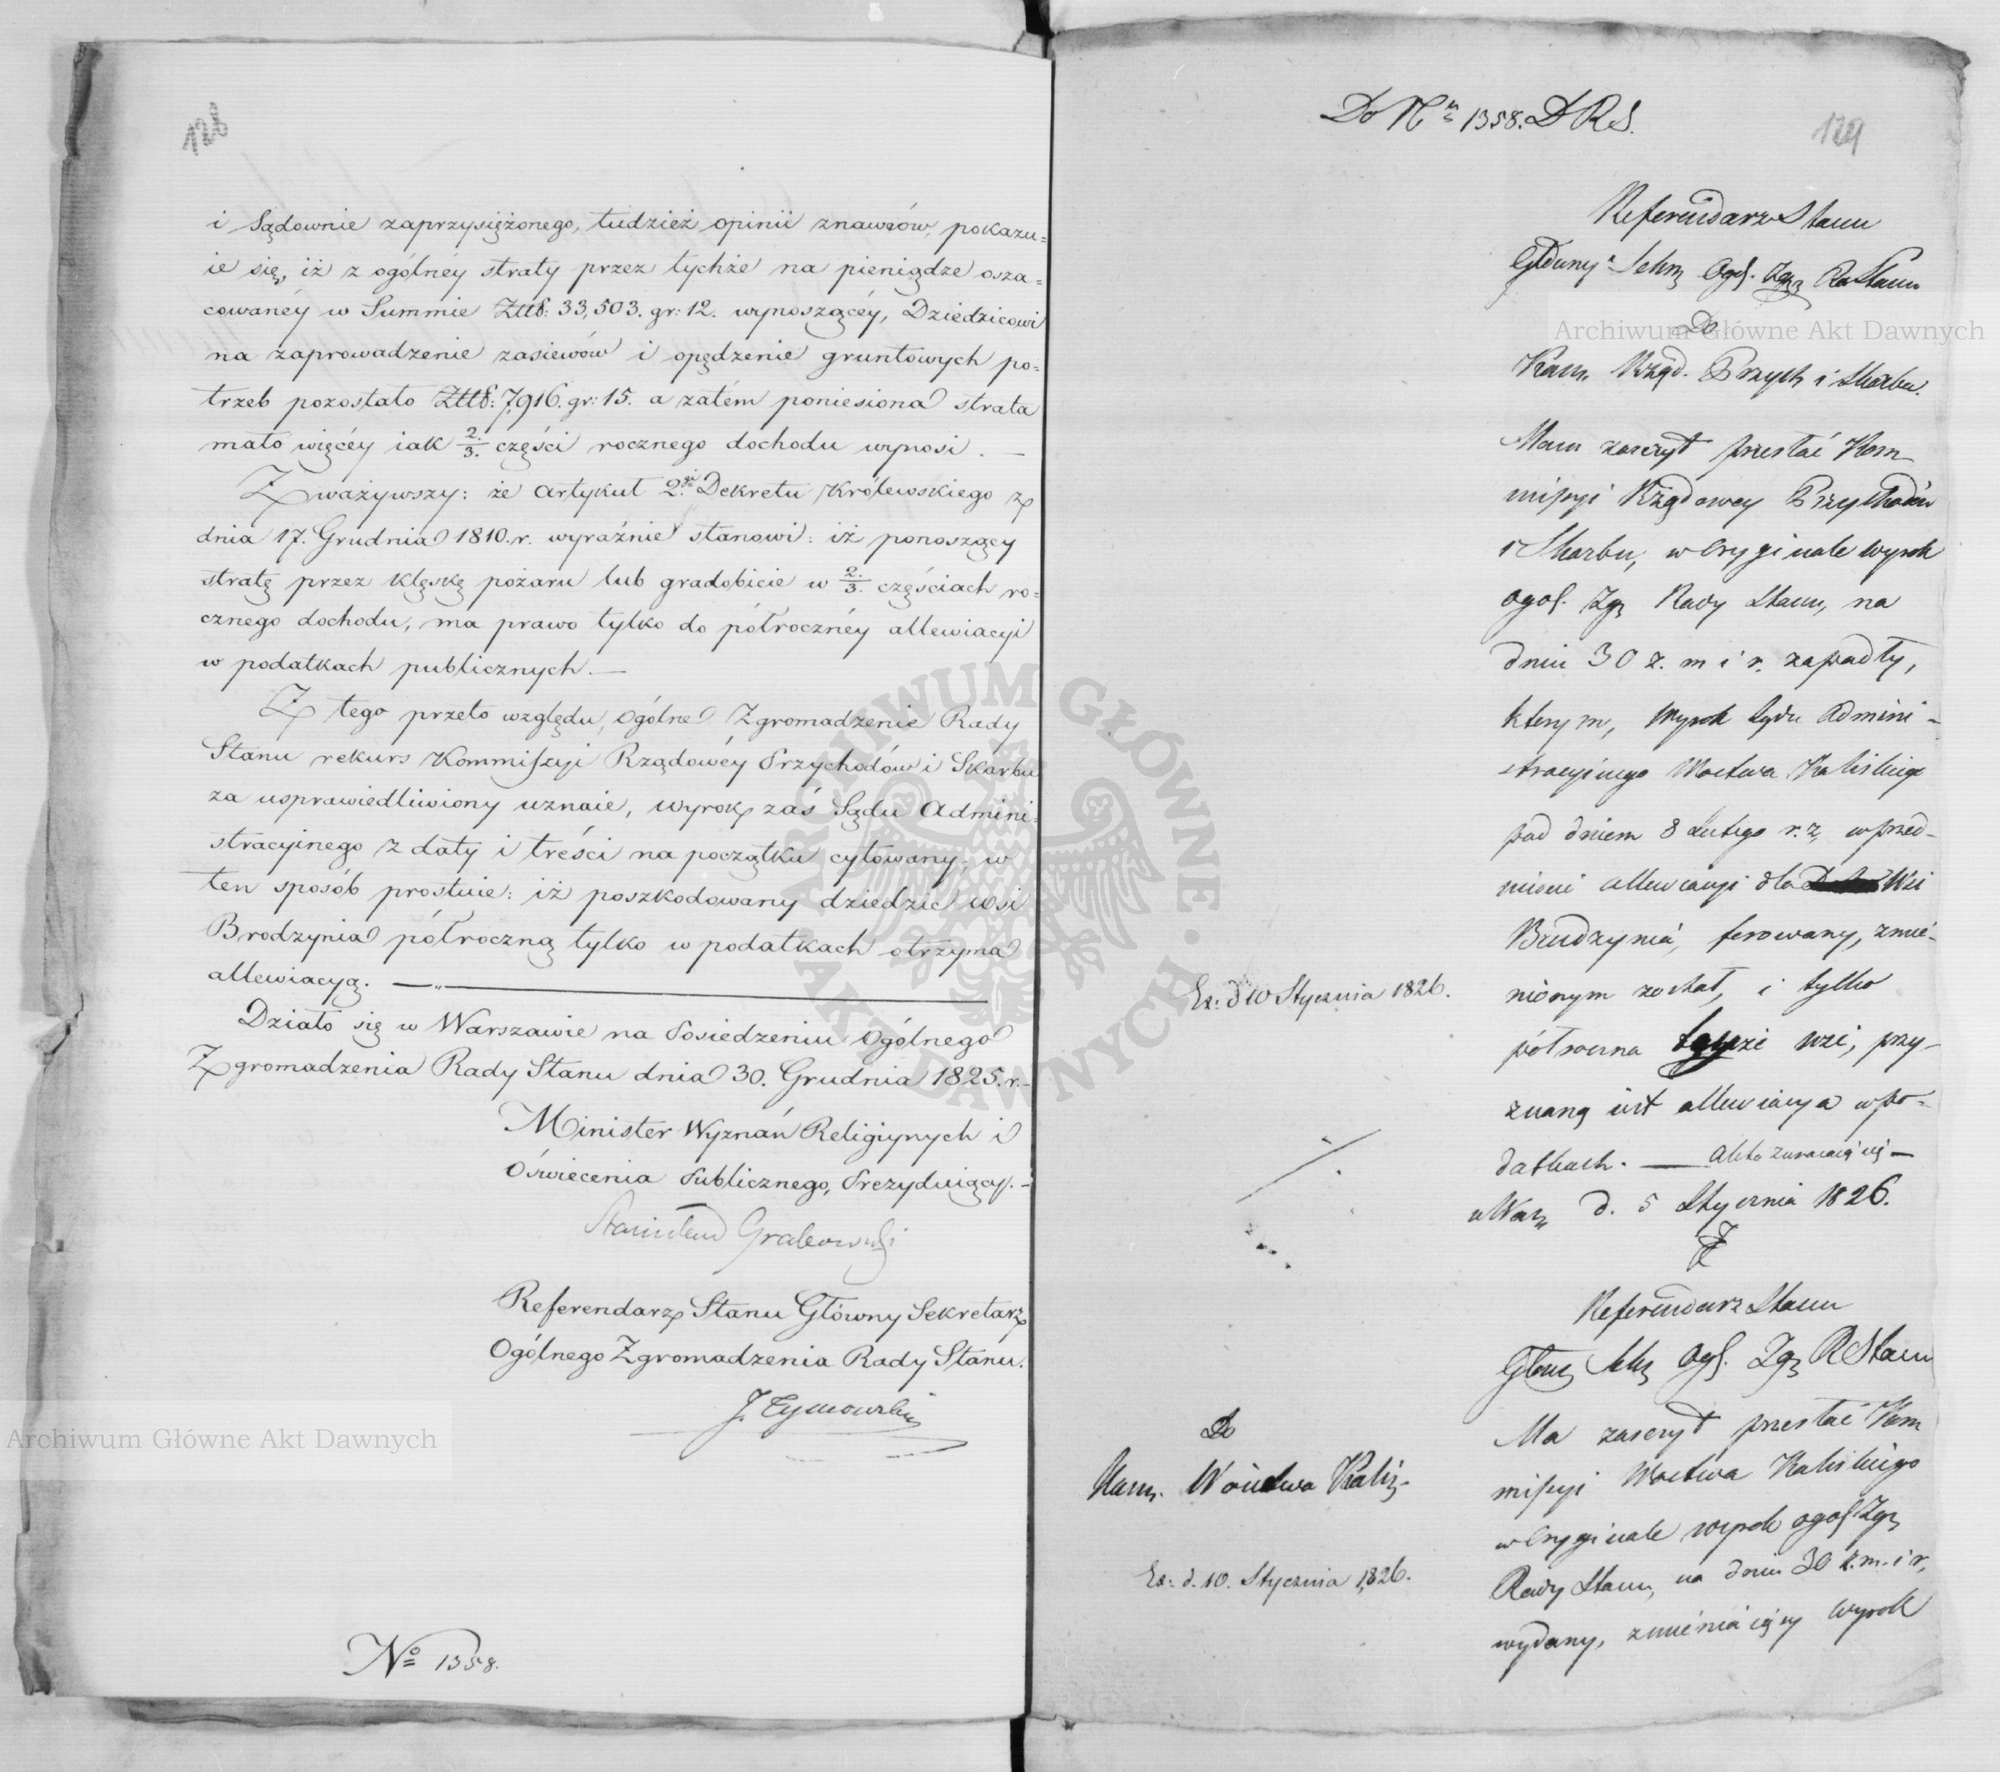 128
i Sądownie zaprzysiężonego, tudzież opinii znawców, pokazu=
ie się, iż z ogólnéy straty przez tychże na pieniądze osza=
cowanéy w Summie Złtt: 33,503. gr: 12. wynoszącéy, Dziedzicowi
na zaprowadzenie zasiewów i opędzenie gruntowych po=
trzeb pozostało Złtt: 7,916. gr: 15. a zatém poniesiona strata
mało więcéy iak 2/3. części rocznego dochodu wynosi. —
Zważywszy: że artykuł 2.gi Dekretu Królewskiego z
dnia 17. Grudnia 1810. r. wyraźnie stanowi: iż ponoszący
stratę przez klęskę pożaru lub gradobicie w 2/3. częściach ro=
cznego dochodu, ma prawo tylko do półrocznéy allewiacyi
w podatkach publicznych. —
Z tego przeto względu, Ogólne Zgromadzenie Rady
Stanu rekurs Kommissyi Rządowéy Przychodów i Skarbu
za usprawiedliwiony uznaie, wyrok zaś Sądu Admini=
stracyinego z daty i treści na początku cytowany, w
ten sposób prostuie: iż poszkodowany dziedzic wsi
Brodzynia półroczną tylko w podatkach otrzyma
allewiacyą. —„—
Działo się w Warszawie na Posiedzeniu Ogólnego
Zgromadzenia Rady Stanu dnia 30. Grudnia 1825. r. —
Minister Wyznań Religiynych i
Oświecenia Publicznego, Prezyduiący. —
Stanisław Grabowski
Referendarz Stanu Główny Sekretarz
Ogólnego Zgromadzenia Rady Stanu.
J. Tymowski
No 1358.
Do Nru 1358. D R S.
129
Referendarz Stanu
Główny Sekrz Ogól. Zgrz Ra Stanu
Do
Kom. Rząd. Przych i Skarbu.
Mam zaszczyt przesłać Kom
missyi Rządowey Przychodów
i Skarbu, w Oryginale wyrok
ogól. Zgr Rady Stanu, na
dniu 30 z. m i r. zapadły,
którym, wyrok Sądu Admini-
stracyinego Woiewa Kaliskiego
pod dniem 8 Lutego r. z, w przed-
miocie allewiacyi dla Wsi
Brudzynia, ferowany, zmie-
nionym został, i tylko
półroczna wsi, przy-
znaną iest allewiacya w po-
datkach. — Akta zwracaią się —
w Warz d. 5 Stycznia 1826.
Ex: d 10 Stycznia 1826.
Referendarz Stanu
Główny Sekrz Ogól. Zgrz R Stanu
Do
Kom. Woiewa Kalis.
Ex: d. 10. Stycznia 1826.
Ma zaszczyt przesłać Kom
missyi Woiewa Kaliskiego
w Oryginale wyrok ogól Zgrz
Rady Stanu, na dniu 30 z. m. i r,
wydany, zmieniaiący wyrok
Archiwum Główne Akt Dawnych
Archiwum Główne Akt Dawnych
ARCHIWUM GŁÓWNE · AKT DAWNYCH ·